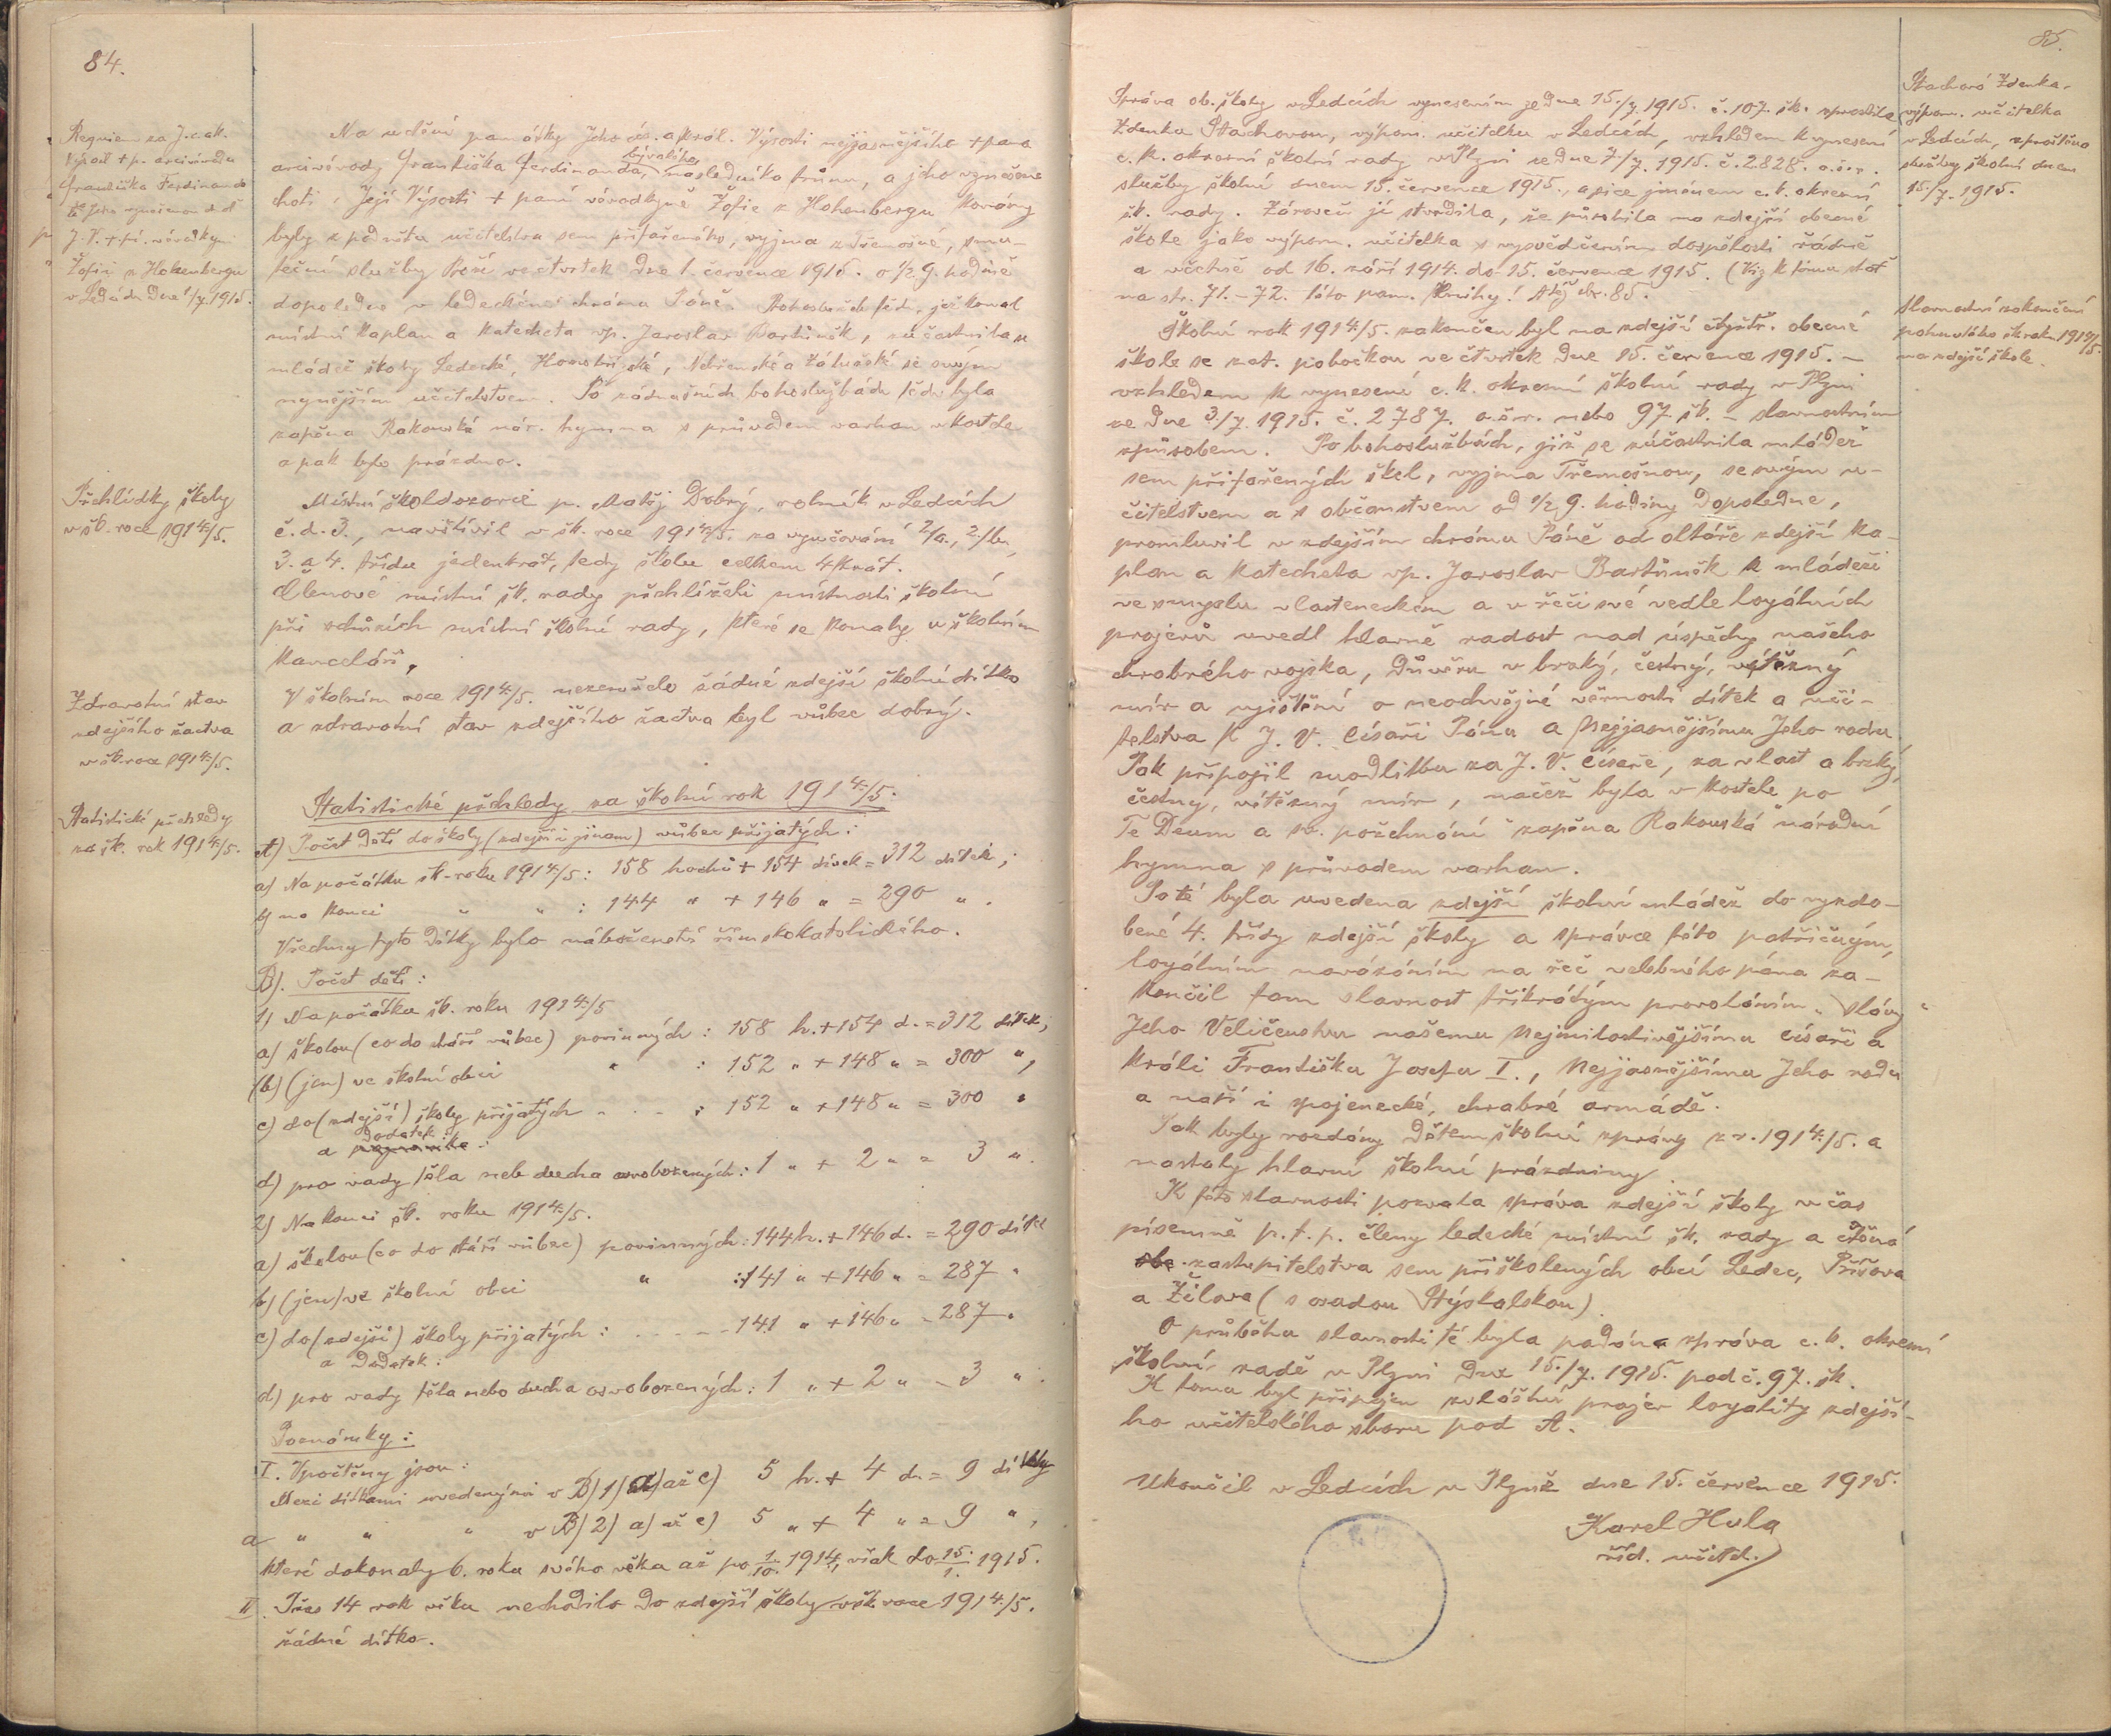 84.
Requiem za J. c. a k.
Výsost + p. arcivévodu
Františka Ferdinanda
a Jeho vznešenou choť
J. V. + pí. vévodkyni
Žofii z Hohenbergu
v Ledcích dne 1/7. 1915.
Na uctění památky Jeho cís. a král. Výsosti nejjasnějšího + pana
arcivévody Františka Ferdinanda, bývalého následníka trůnu, a jeho vznešené
choti, Její Výsosti + paní vévodkyně Žofie z Hohenbergu konány
byly z podnětu učitelstva sem přifařeného, vyjma z Třemošné, smu-
teční služby Boží ve čtvrtek dne 1. července 1915. o ½ 9. hodině
dopoledne v ledeckém chrámu Páně. Bohoslužeb těch, jež konal
místní kaplan a katecheta vp. Jaroslav Bartůněk, súčastnila se
mládež školy Ledecké, Hromnické, Nekmířské a Zálužské se svým
nynějším učitelstvem. Po zádušních bohoslužbách těch byla
zapěna Rakouská nár. hymna s průvodem varhan v kostele
a pak bylo prázdno.
Přehlídky školy
v šk. roce 1914/5.
Místní školdozorce p. Matěj Dobrý, rolník v Ledcích
č. d. 3., navštívil v šk. roce 1914/5. za vyučování 2/a., 2./b.,
3. a 4. třídu jedenkrát, tedy školu celkem 4krát.
Členové místní šk. rady přehlíželi místnosti školní
při schůzích místní školní rady, které se konaly v školním
kanceláři.
Zdravotní stav
zdejšího žactva
v šk. roce 1914/5.
V školním roce 1914/5. nezemřelo žádné zdejší školní dítko
a zdravotní stav zdejšího žactva byl vůbec dobrý.
Statistické přehledy
za šk. rok 1914/5.
Statistické přehledy za školní rok 1914/5.
A) Počet dětí do školy (zdejší i jinam) vůbec přijatých:
a) Na počátku šk. roku 1914/5: 158 hochů + 154 dívek = 312 dítek;
b) na konci " " : 144 " + 146 " = 290 " .
Všechny tyto dítky bylo náboženství římskokatolického.
B). Počet dětí:
1) Na počátku šk. roku 1914/5
a) školou (co do stáří vůbec) povinných: 158 h. + 154 d. = 312 dítek;
(b) (jen) ve školní obci " : 152 " + 148 " = 300 ",
c) do (zdejší) školy přijatých . . . : 152 " + 148 " = 300 "
a dodatek:
d) pro vady těla neb ducha osvobozených: 1 " + 2 " = 3 ".
2) Na konci šk. roku 1914/5.
a) školou (co do stáří vůbec) povinných: 144 h. + 146 d. = 290 dítek
b) (jen) ve školní obci " : 141 " + 146 " = 287 "
c) do (zdejší) školy přijatých: . . . . 141 " + 146 " = 287 "
a Dodatek:
d) pro vady těla nebo ducha osvobozených: 1 " + 2 " = 3 ".
Poznámky:
I. Vpočteny jsou:
Mezi dítkami uvedenými v B) 1) a) až c) 5 h. + 4 d. = 9 dítky
a " " " v B) 2) a) až c) 5 " + 4 " = 9 ",
které dokonaly 6. roku svého věku až po 1./10. 1914, však do 15./1. 1915.
II. Přes 14 rok věku nechodilo do zdejší školy v šk. roce 1914/5.
žádné dítko.
85.
Stachová Zdenka,
výpom. učitelka
v Ledcích, sproštěna
služby školní dnem
15./7. 1915.
Správa ob. školy v Ledcích vynesením ze dne 15./7. 1915. č. 107. šk. sprostila
Zdenku Stachovou, výpom. učitelku v Ledcích, vzhledem k vynesení
c. k. okresní školní rady v Plzni ze dne 7./7. 1915. č. 2828. o. š. r.
služby školní dnem 15. července 1915., a sice jménem c. k. okresní
šk. rady. Zároveň jí stvrdila, že působila na zdejší obecné
škole jako výpom. učitelka s vysvědčením dospělosti řádně
a včetně od 16. září 1914. do 15. července 1915. (Viz k tomu stať
na str. 71. - 72. této pam. knihy! Též str. 85.
Slavnostní zakončení
pohnutého šk. roku 1914/5.
na zdejší škole.
Školní rok 1914/5. zakončen byl na zdejší čtyřtř. obecné
škole se zat. pobočkou ve čtvrtek dne 15. července 1915. -
vzhledem k vynesení c. k. okresní školní rady v Plzni
ze dne 3/7. 1915. č. 2787. o. š. r. nebo 97. šk. - slavnostním
způsobem. Po bohoslužbách, jíž se súčastnila mládež
sem přifařených škol, vyjma Třemošnou, se svým u-
čitelstvem a s občanstvem od ½ 9. hodiny dopoledne,
promluvil v zdejším chrámu Páně od oltáře zdejší ka-
plan a katecheta vp. Jaroslav Bartůněk k mládeži
ve smyslu vlasteneckém a v řeči své vedle loyálních
projevů uvedl hlavně radost nad úspěchy našeho
chrabrého vojska, důvěru v brzký, čestný, vítězný
mír a ujištění o neochvějné věrnosti dítek a uči-
telstva k J. V. Císaři Pánu a Nejjasnějšímu Jeho rodu.
Pak připojil modlitbu za J. V. Císaře, za vlast a brzký,
čestný, vítězný mír, načež byla v kostele po
Te Deum a sv. požehnání zapěna Rakouská národní
hymna s průvodem varhan.
Poté byla uvedena zdejší školní mládež do vyzdo-
bené 4. třídy zdejší školy a správce této patřičným,
loyálním navázáním na řeč velebného pána za-
končil tam slavnost třikrátým provoláním "Slávy"
Jeho Veličenstvu našemu Nejmilostivějšímu císaři a
králi Františku Josefu I., Nejjasnějšímu Jeho rodu
a naší i spojenecké, chrabré armádě.
Pak byly rozdány dětem školní zprávy z r. 1914/5. a
nastaly hlavní školní prázdniny.
K této slavnosti pozvala správa zdejší školy v čas
písemně p. t. p. členy ledecké místní šk. rady a ctěná
zastupitelstva sem přiškolených obcí Ledec, Příšova
a Žilova (s osadou Stýskalskou).
O průběhu slavnosti té byla podána zpráva c. k. okresní
školní radě v Plzni dne 15./7. 1915. pod č. 97. šk.
K tomu byl připojen zvláštní projev loyality zdejší-
ho učitelského sboru pod A.
Ukončil v Ledcích u Plzně dne 15. července 1915.
Karel Hula
říd. učitel.